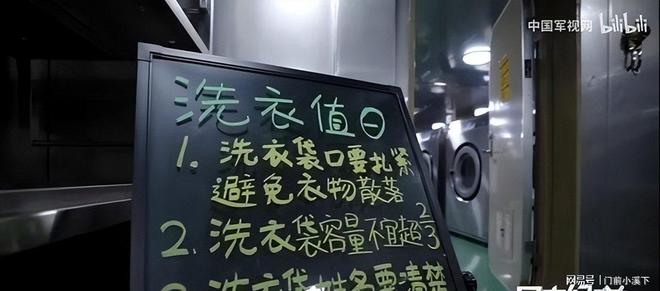 中国军视网 bilibili
洗衣值日
1. 洗衣袋口要扎紧
避免衣物散落
2. 洗衣袋容量不宜超2/3
洗衣袋姓名要清楚
网易号 | 门前小溪下